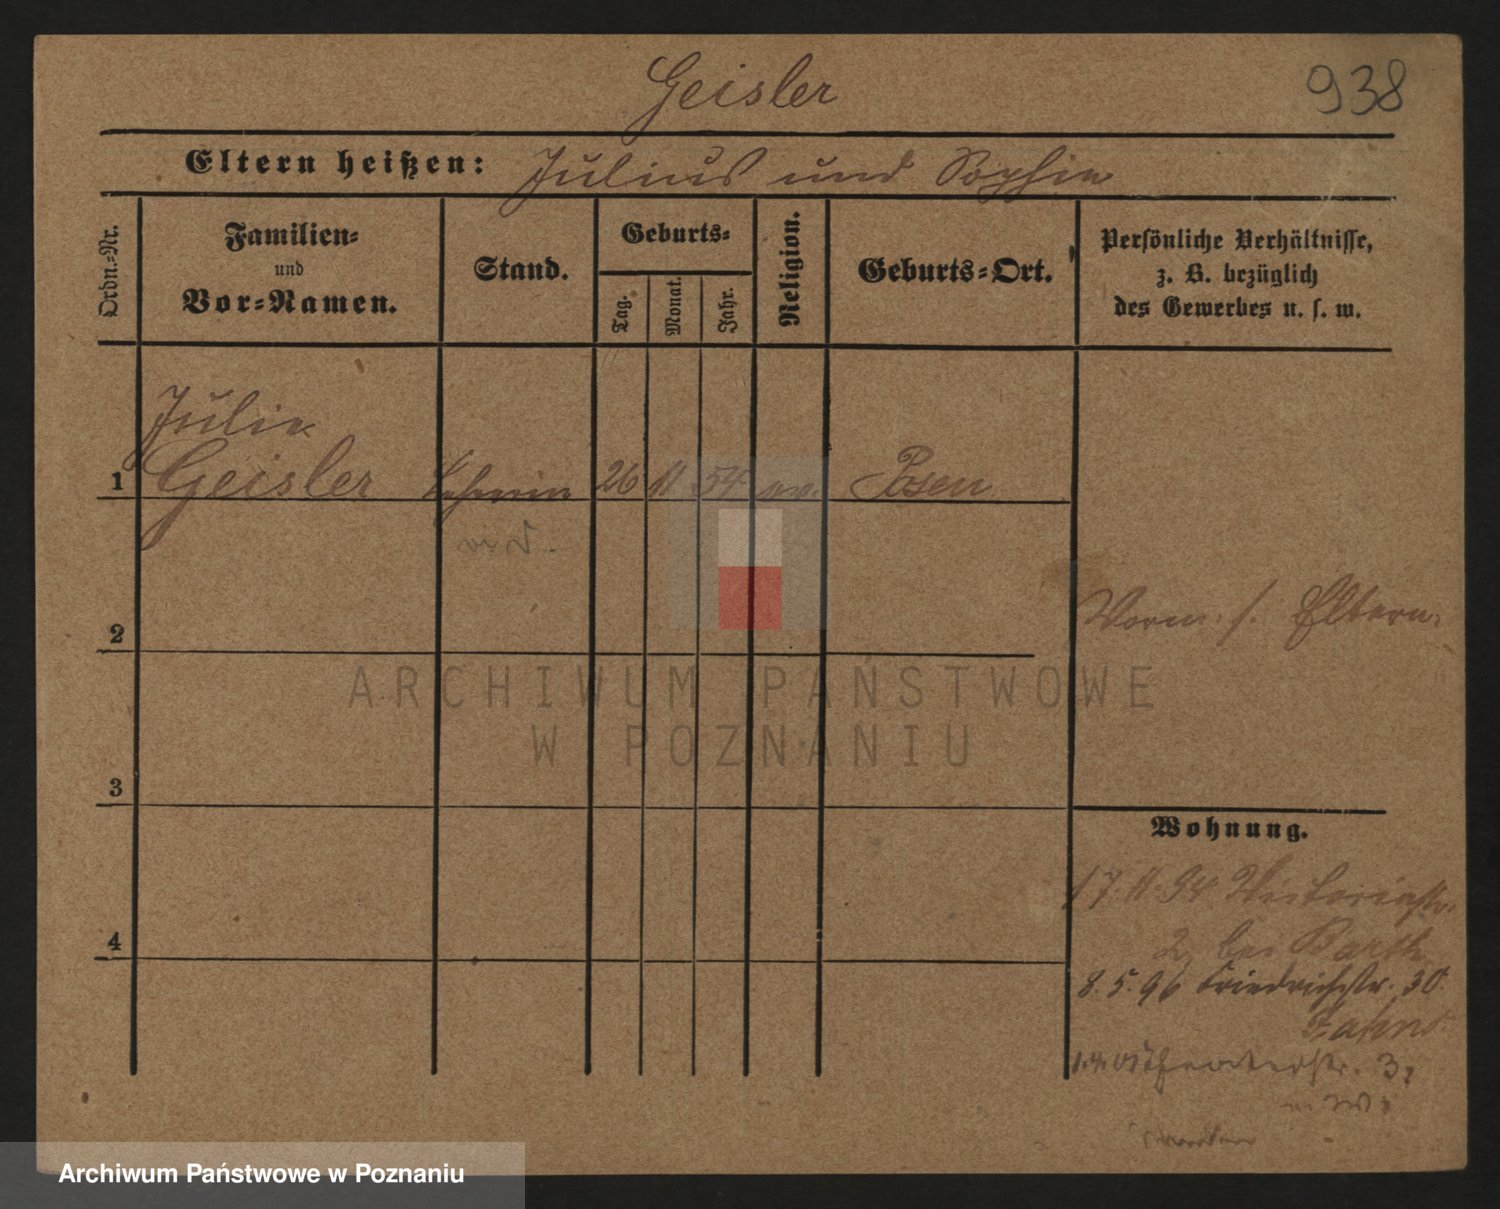 Geisler
938
Eltern heißen: Julius und Sophie
Ordn.-Nr.
Familien-
und
Vor-Namen.
Stand.
Geburts-
Tag.
Monat.
Jahr.
Religion.
Geburts-Ort.
Persönliche Verhältnisse,
z. B. bezüglich
des Gewerbes u. s. w.
Julie
1 Geisler 26 11 54 ev. Posen
2
Vorm. s. Eltern.
3
4
Wohnung.
17. 11. 94 Victoriastr.
2 bei Barth
8. 5. 96 Friedrichstr. 30.
Jahns
1.4.01 Theaterstr. 3
ARCHIWUM PAŃSTWOWE
W POZNANIU
Archiwum Państwowe w Poznaniu